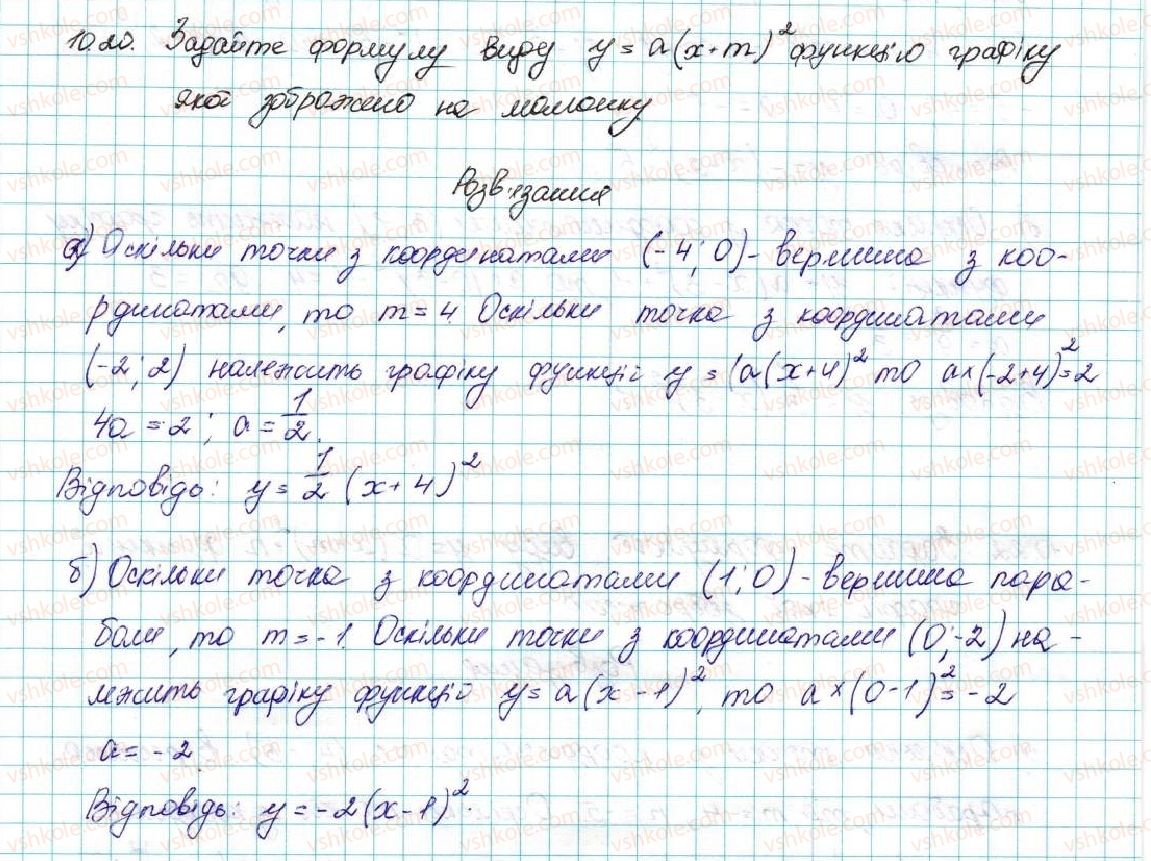 10.20. Задайте формулу виду y = a(x+m)² функцію графіку
якої зображено на малюнку
Розв'язання
а) Оскільки точки з координатами (-4; 0) - вершина з коо-
рдинатами, то m = 4. Оскільки точка з координатами
(-2; 2) належить графіку функції y = (a(x+4)² то a×(-2+4)²=2
4a = 2; a = 1/2.
Відповідь: y = 1/2 (x+4)²
б) Оскільки точка з координатами (1; 0) - вершина пара-
боли, то m = -1. Оскільки точки з координатами (0; -2) на-
лежить графіку функції y = a(x-1)², то a×(0-1)² = -2
a = -2.
Відповідь: y = -2(x-1)².